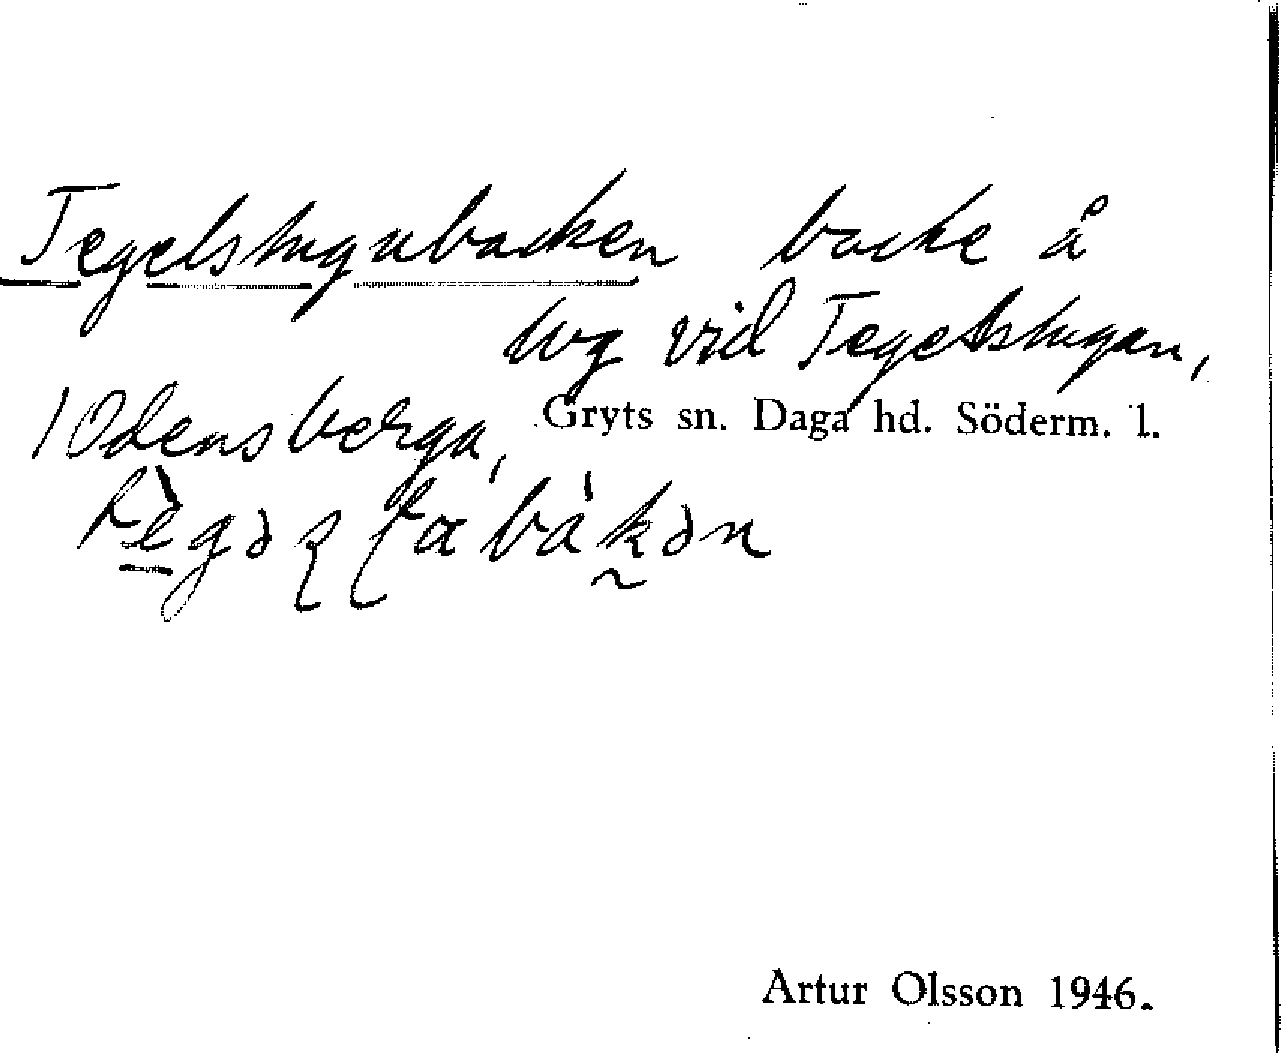 Tegelstugubacken backe å
lvg vid Tegelstugan,
1 Odensberga, Gryts sn. Daga hd. Söderm. l.
Artur Olsson 1946.